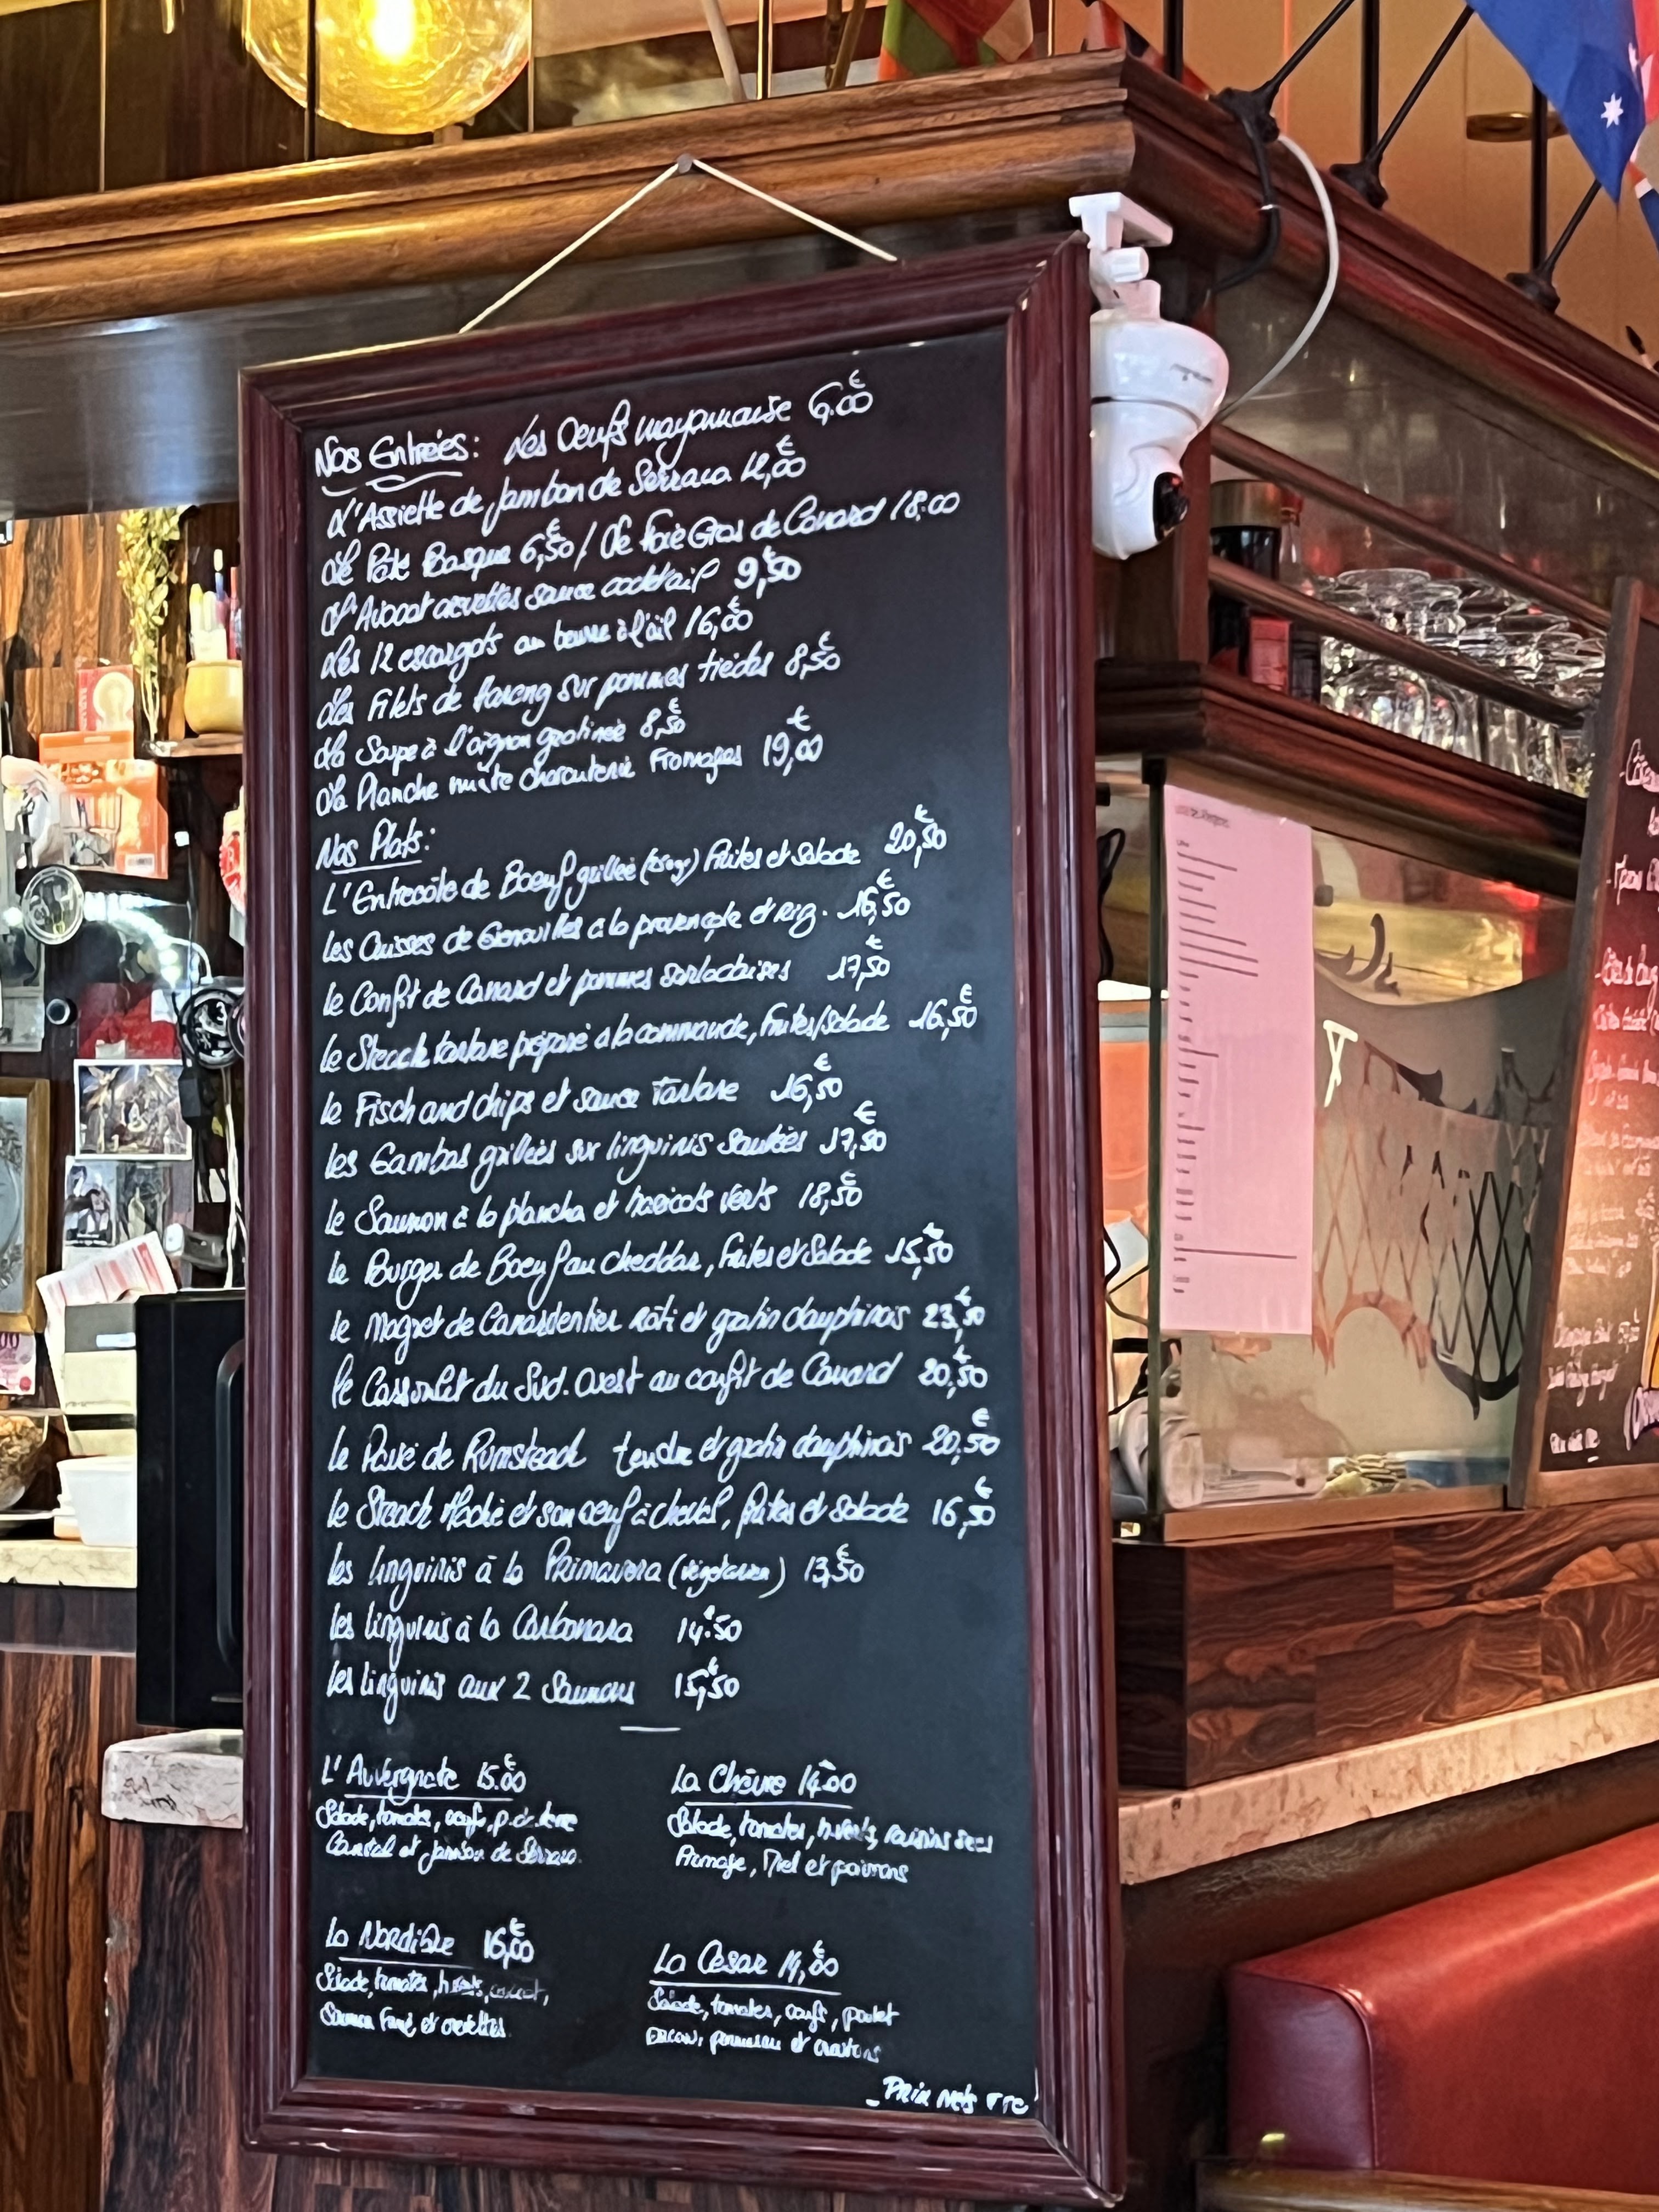 Nos Entrées: Les Oeufs mayonnaise 6.00€
L'Assiette de Jambon de Serrano 12,00€
Le Pâté Basque 6,50€ / Le Foie Gras de Canard 18.00
L'Avocat crevettes sauce cocktail 9,50€
Les 12 escargots au beurre à l'ail 16,00€
Les Filets de Hareng sur pommes tièdes 8,50€
La Soupe à l'oignon gratinée 8,50€
La Planche mixte charcuterie Fromages 19,00€
Nos Plats:
L'Entrecôte de Boeuf grillée Frites et Salade 20,50€
Les Cuisses de Grenouilles à la provençale et Riz. 16,50€
le Confit de Canard et pommes sarladaises 17,50€
le Steack tartare préparé à la commande, Frites/Salade 16,50€
le Fisch and chips et sauce Tartare 16,50€
les Gambas grillées sur linguinis sautées 17,50€
le Saumon à la plancha et haricots verts 18,50€
le Burger de Boeuf au cheddar, Frites et Salade 15,50€
le Magret de Canard entier rôti et gratin dauphinois 23,50€
le Cassoulet du Sud.Ouest au confit de Canard 20,50€
le Pavé de Rumsteack tendre et gratin dauphinois 20,50€
le Steack Haché et son oeuf à cheval, frites et salade 16,50€
les linguinis à la Primavera (végétarien) 13,50€
les linguinis à la Carbonara 14.50€
les linguinis aux 2 Saumons 15,50€
L'Auvergnate 15.00€
Salade, tomates, oeufs, p.de.terre
Cantal et Jambon de Serrano.
La Chèvre 14.00
Salade, tomates, h.verts, raisins secs
Fromage, Miel et poivrons
La Nordique 16,00€
Salade, tomates, h.verts,
Saumon Fumé et crevettes.
La César 14,00€
Salade, tomates, oeufs, poulet
Bacon, parmesan et croutons
_Prix nets TTC